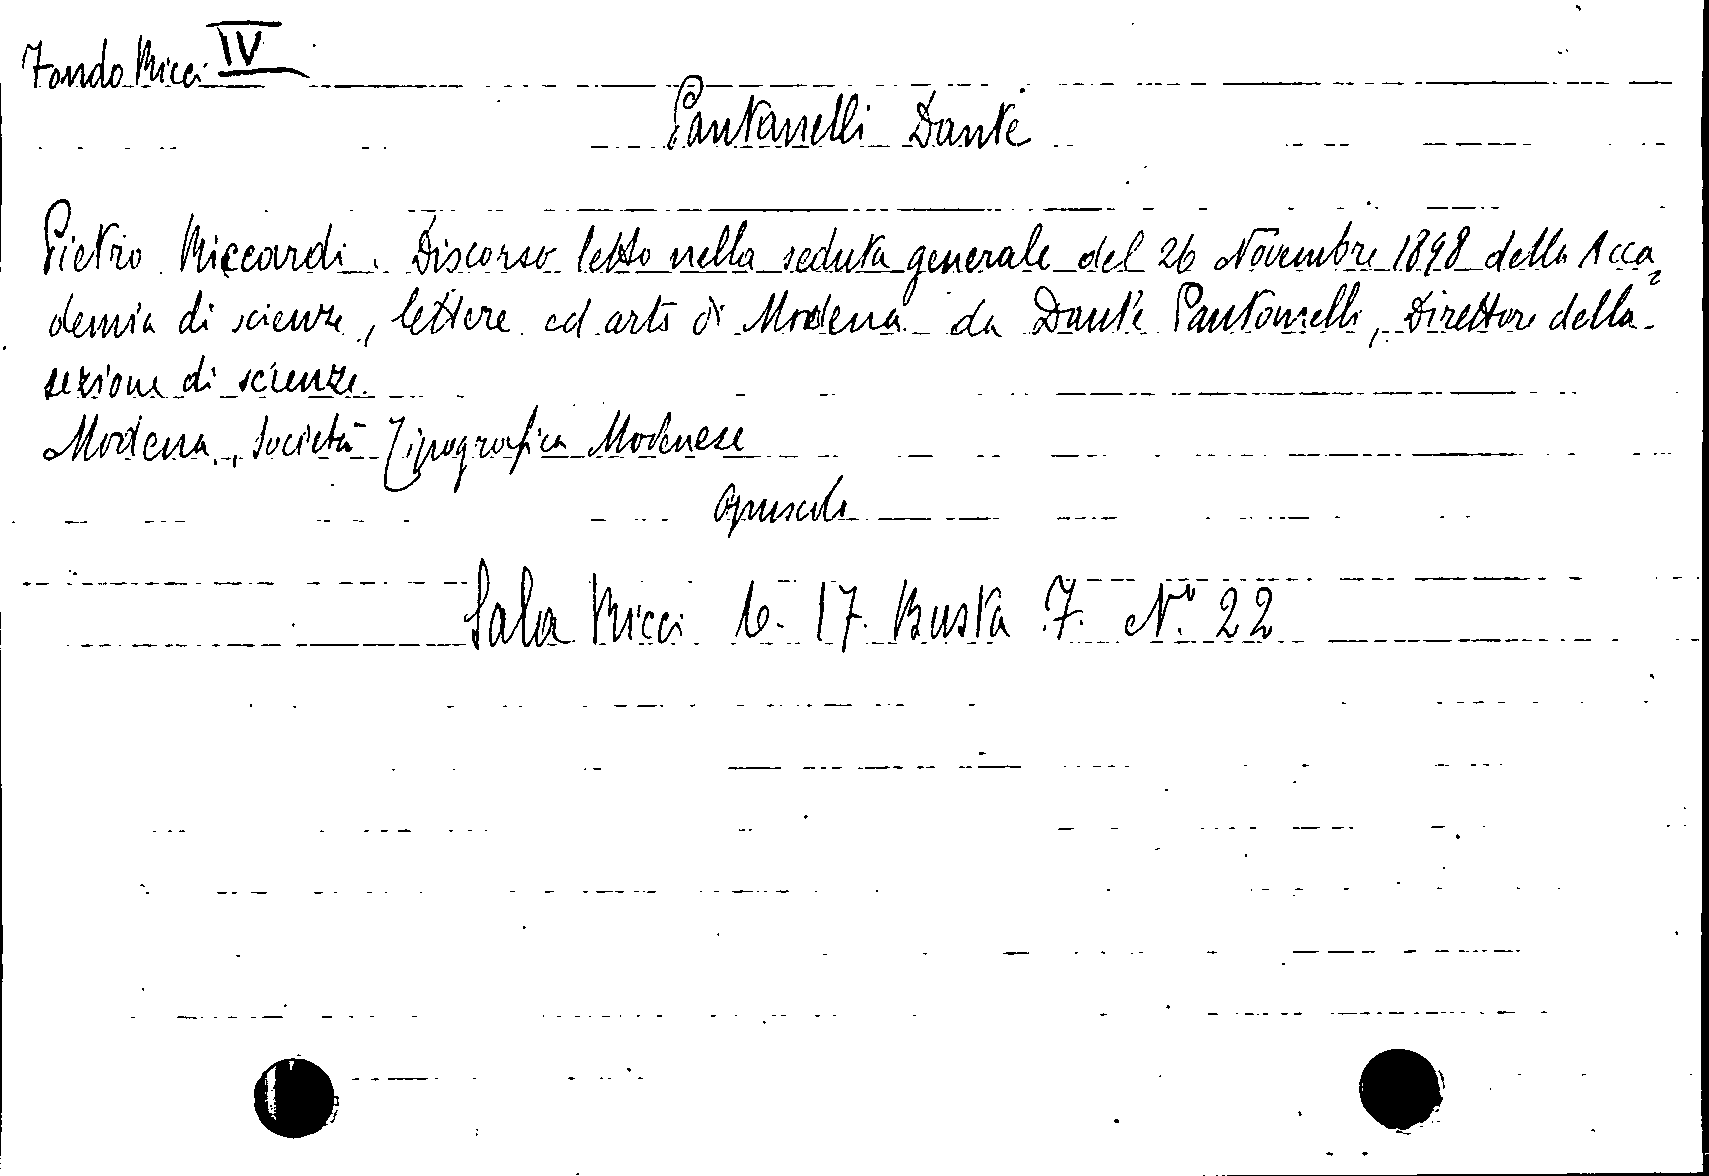 Fondo Ricci IV
Pantanelli Dante
Pietro Riccardi. Discorso letto nella seduta generale del 26 Novembre 1898 della Acca=
demia di scienze, lettere ed arti di Modena da Dante Pantanelli, Direttore della
sezione di scienze.
Modena, Società Tipografica Modenese
opuscolo
Sala Ricci 6. 17. Busta 7. N° 22